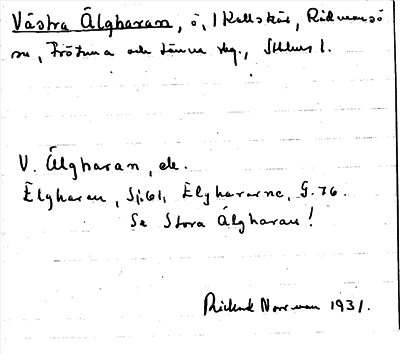 Västra Älgharan, ö, i Kallskär, Rådmansö
sn, Frötuna och Länna skg., Sthlms l.
V. Älgharan, ek.
Elgharan, Sjö61, Elghararne, G. 76.
Se Stora Älgharan!
Rickard Norrman 1931.